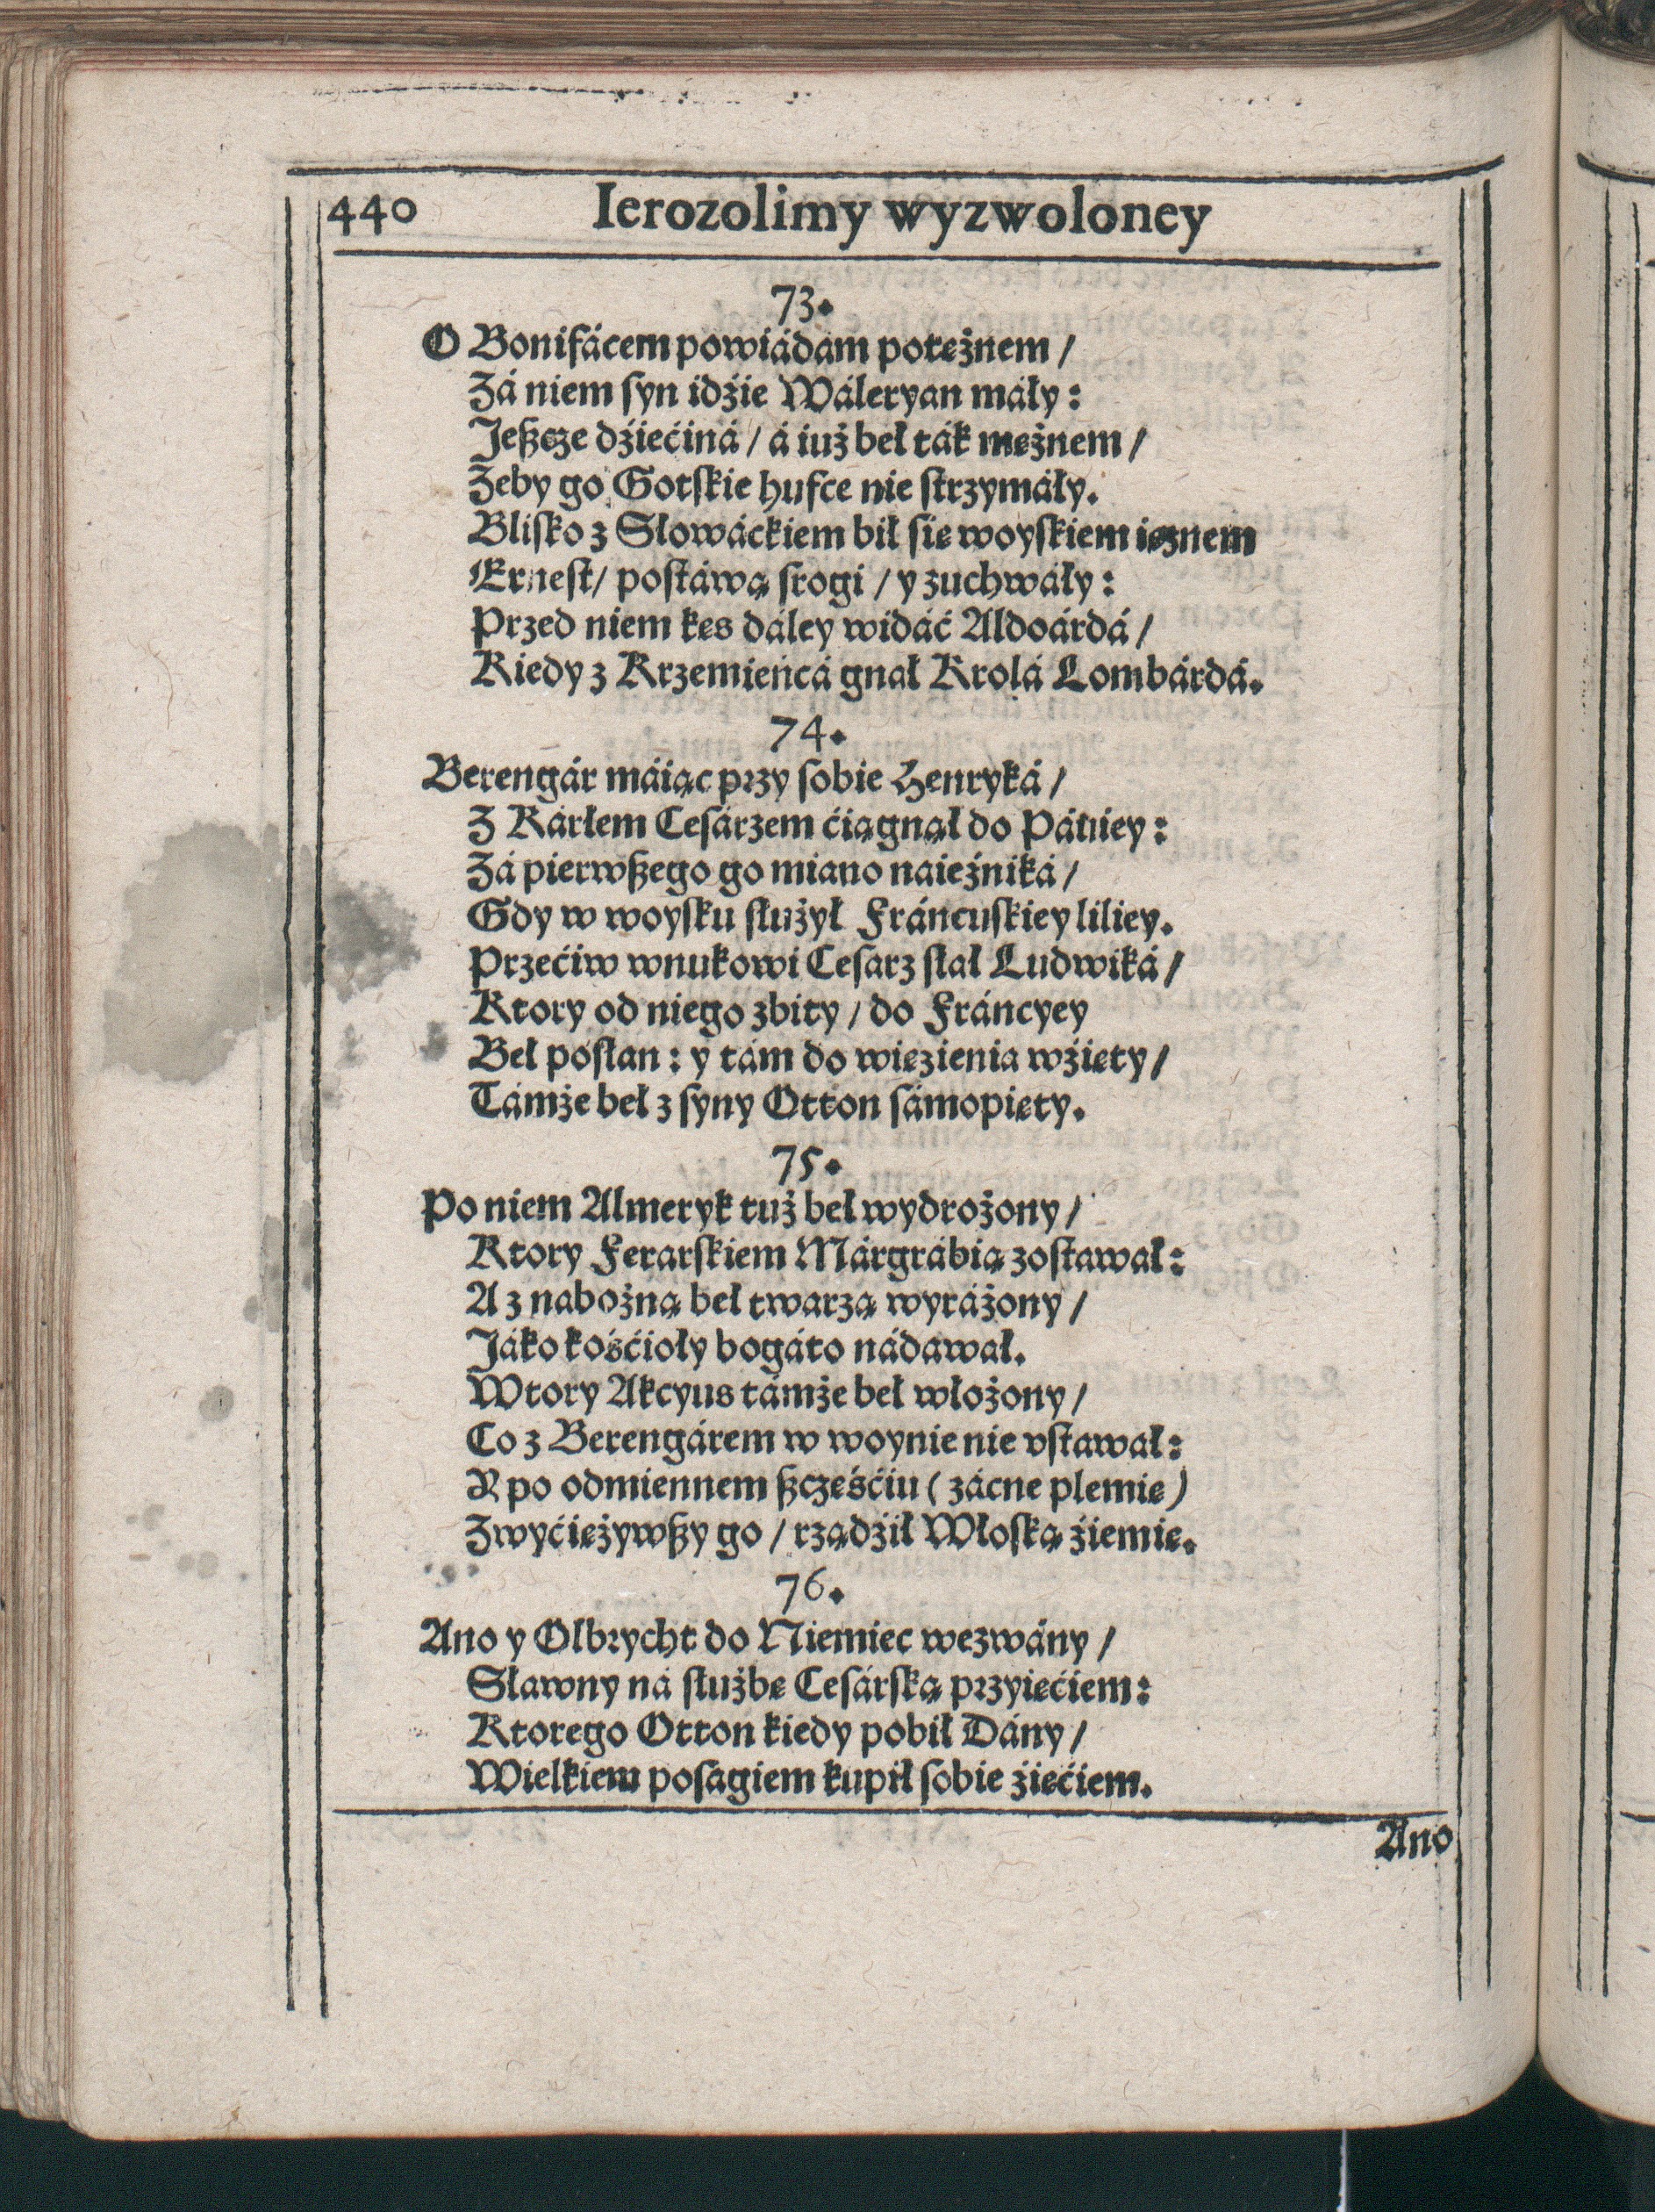 440 Ierozolimy wyzwoloney
73.
O Bonifácem powiádam potężnem /
Zá niem ſyn idźie Wáleryan máły :
Jeßcze dźiećiná / á iuż beł ták mężnem /
Żeby go Gotſkie hufce nie ſtrzymáły.
Bliſko z Słowáckiem bił ſię woyſkiem ięznem
Ernest / poſtáwą ſrogi / y zuchwáły :
Przed niem kęs dáley widáć Aldoárdá /
Kiedy z Krzemieńcá gnał Krolá Lombárdá.
74.
Berengár máiąc przy ſobie Henryká /
Z Kárłem Ceſárzem ćiągnął do Páwiey :
Zá pierwßego go miano naieźniká /
Gdy w woyſku służył Fráncuſkiey liliey.
Przećiw wnukowi Ceſarz ſtał Ludwiká /
Ktory od niego zbity / do Fráncyey
Beł poſłan : y tám do więzienia wźięty /
Támże beł z ſyny Otton ſámopięty.
75.
Po niem Almeryk tuż beł wydrożony /
Ktory Ferarſkiem Márgrábią zoſtawał :
A z nabożną beł twarzą wyráżony /
Jáko kośćioły bogáto nádawał.
Wtory Akcyus támże beł włożony /
Co z Berengárem w woynie nie vſtawał :
Y po odmiennem ßcześćiu ( zácne plemię )
Zwyćiężywßy go / rządźił Włoſką źiemię.
76.
Ano y Olbrycht do Niemiec wezwány /
Sławny ná służbę Ceſárſką przyięćiem :
Ktorego Otton kiedy pobił Dány /
Wielkiem poſagiem kupił ſobie źięćiem.
Ano